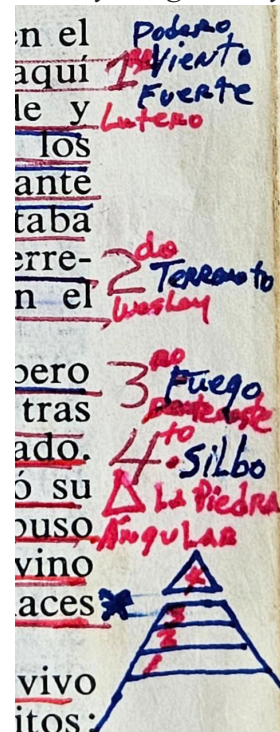 n el
aquí
le y
los
ante
taba
erre-
n el
pero
tras
ado.
ó su
puso
vino
aces
vivo
itos:
Podero
1ro Viento
Fuerte
Lutero
2do
Terremoto
Wesley
3ro
Fuego
4to. Silbo
La Piedra
Angular
4
3
2
1